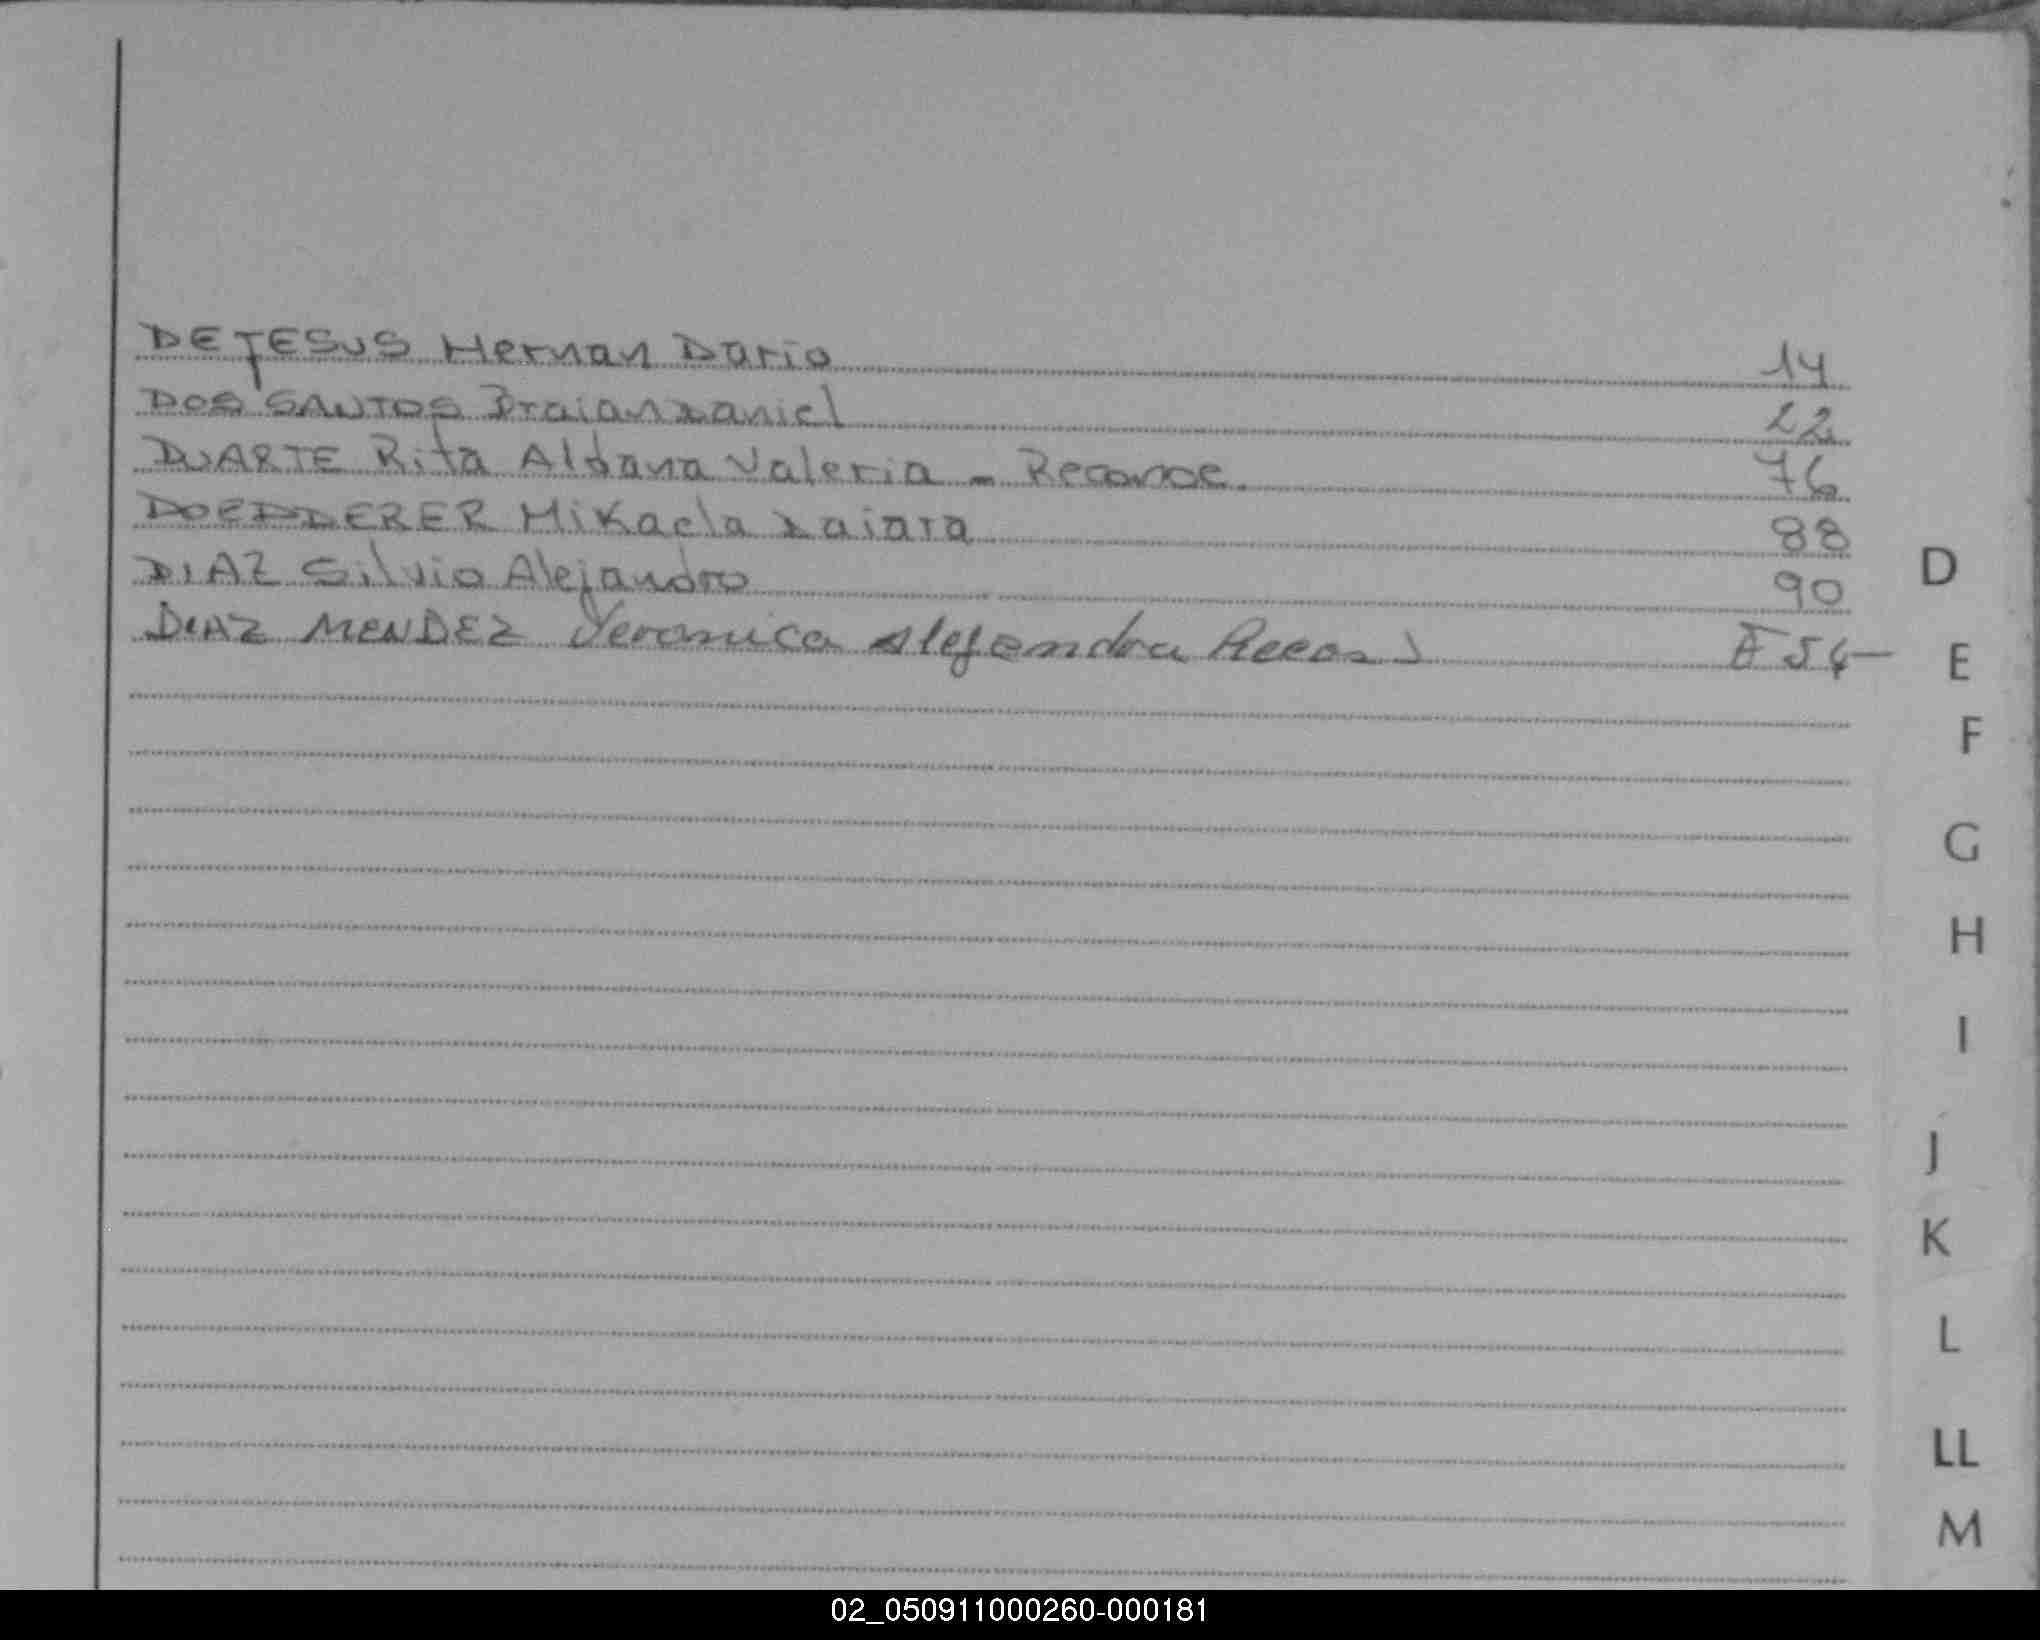 DE JESUS Hernan Dario 14
DOS SANTOS Braian Daniel 22
DUARTE Rita Aldana Valeria - Reconoc. 76
DOEDDERER Mikaela Daiara 88
DIAZ Silvio Alejandro 90
DIAZ MENDEZ Veronica Alejandra 54
D
E
F
G
H
I
J
K
L
LL
M
02_050911000260-000181